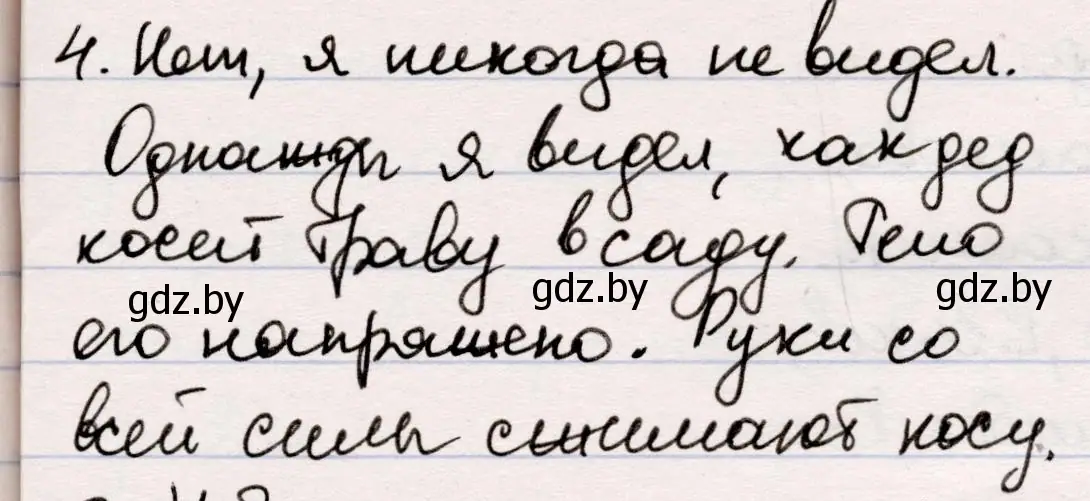 4. Нет, я никогда не видел.
Однажды я видел, как дед
косит траву в саду. Тело
gdz.by gdz.by gdz.by
его напряжено. Руки со
всей силы сжимают косу.